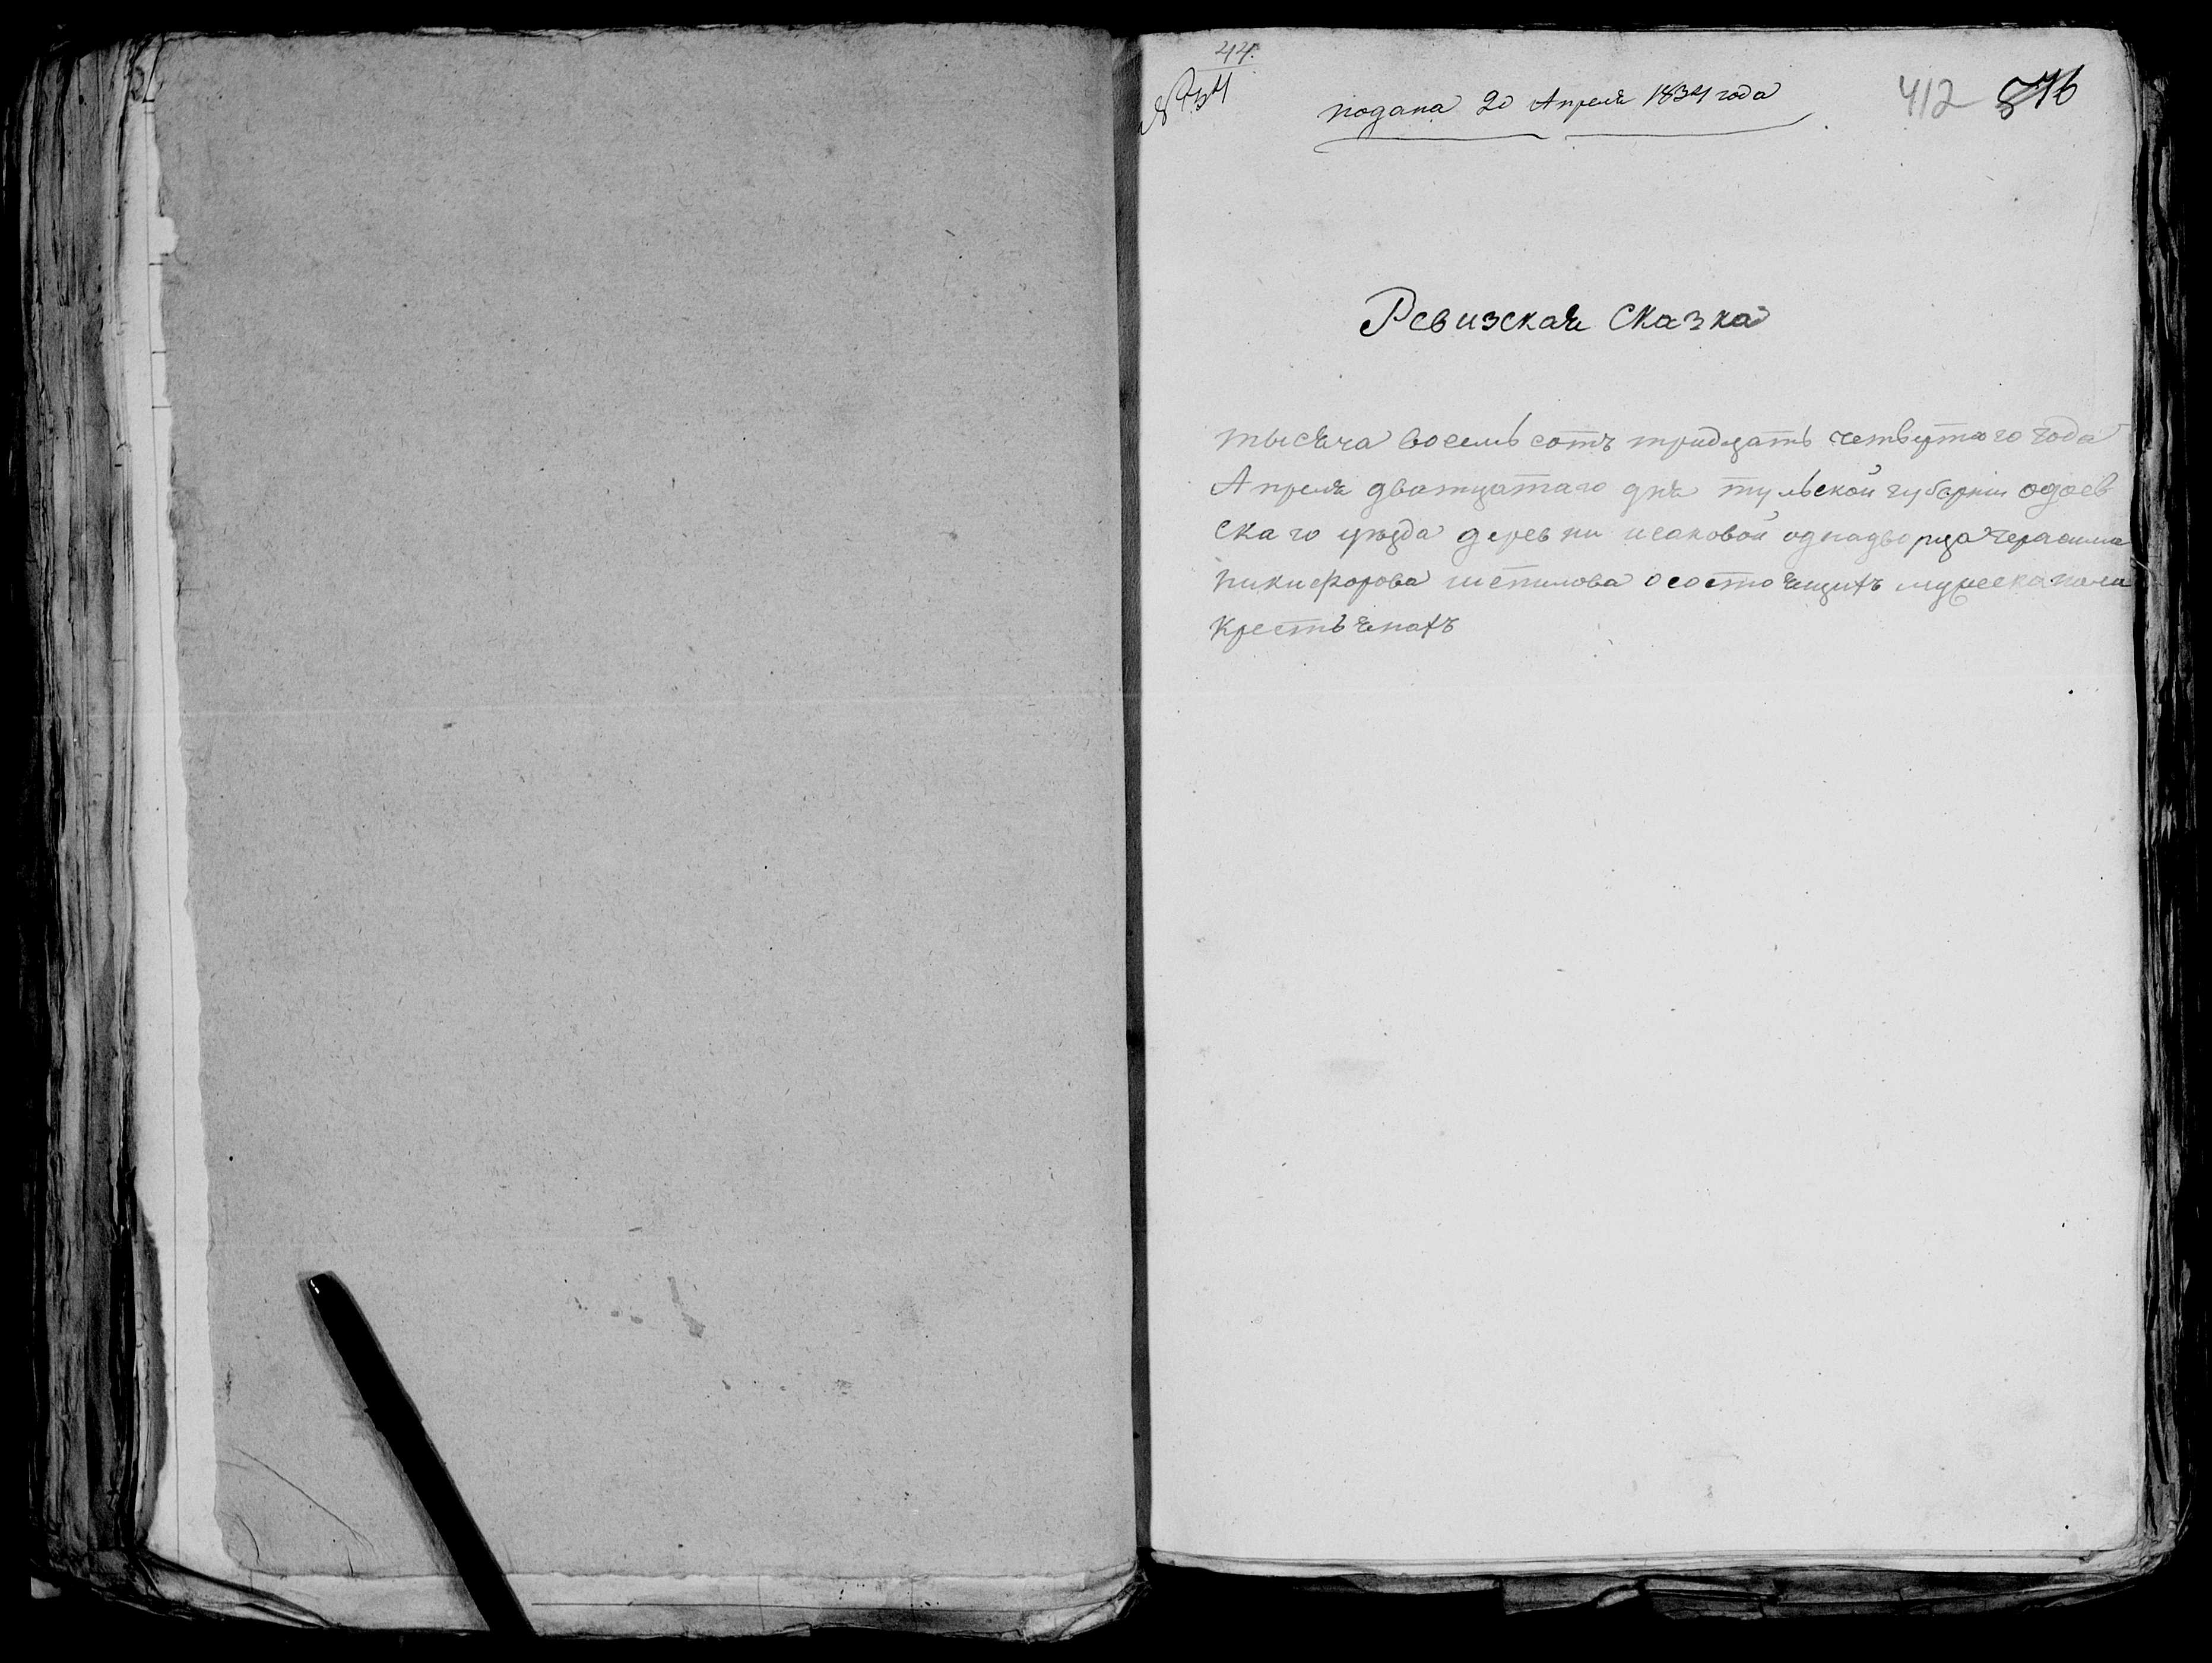 44.
№ 54
подана 20 Апреля 1834 года
412 576
Ревизская Сказка
тысяча восемь сотъ тридцать четвертого года
Апреля дватцатаго дня тульской губернии одоев
скаго уезда деревни исаковой однадворца Герасима
Никифорова о состоящихъ мужеска пола
крестьянахъ